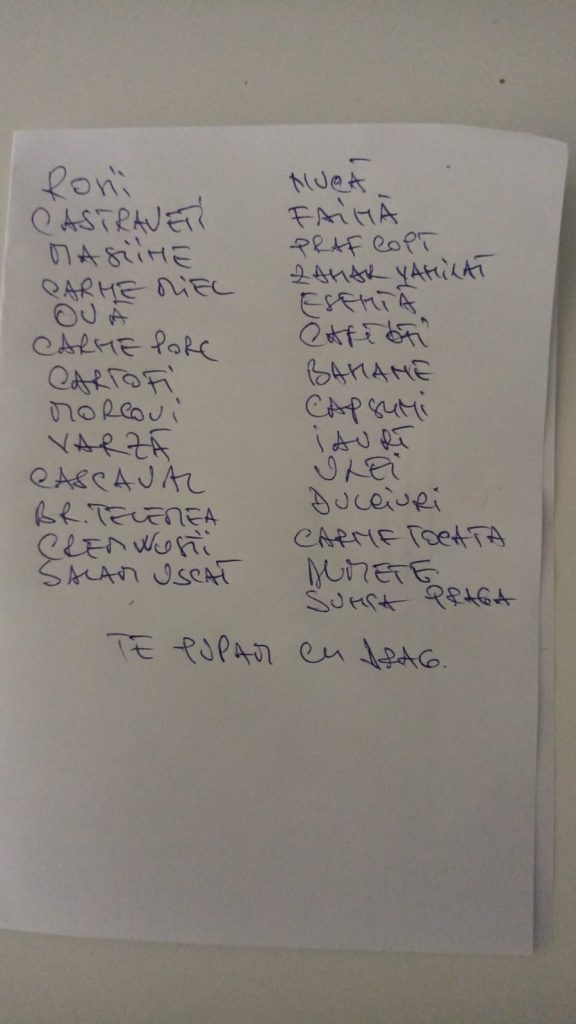 ROȘII
CASTRAVEȚI
MASLINE
CARNE MIEL
OUĂ
CARNE PORC
CARTOFI
MORCOVI
VARZĂ
CASCAVAL
BR. TELEMEA
CREMWUSTI
SALAM USCAT
NUCĂ
FAINĂ
PRAF COPT
ZAHAR VANILAT
ESENȚĂ
CARTOFI
BANANE
CAPSUNI
IAURT
ULEI
DULCIURI
CARNE TOCATA
SUNCA PRAGA
TE PUPAM CU DRAG.